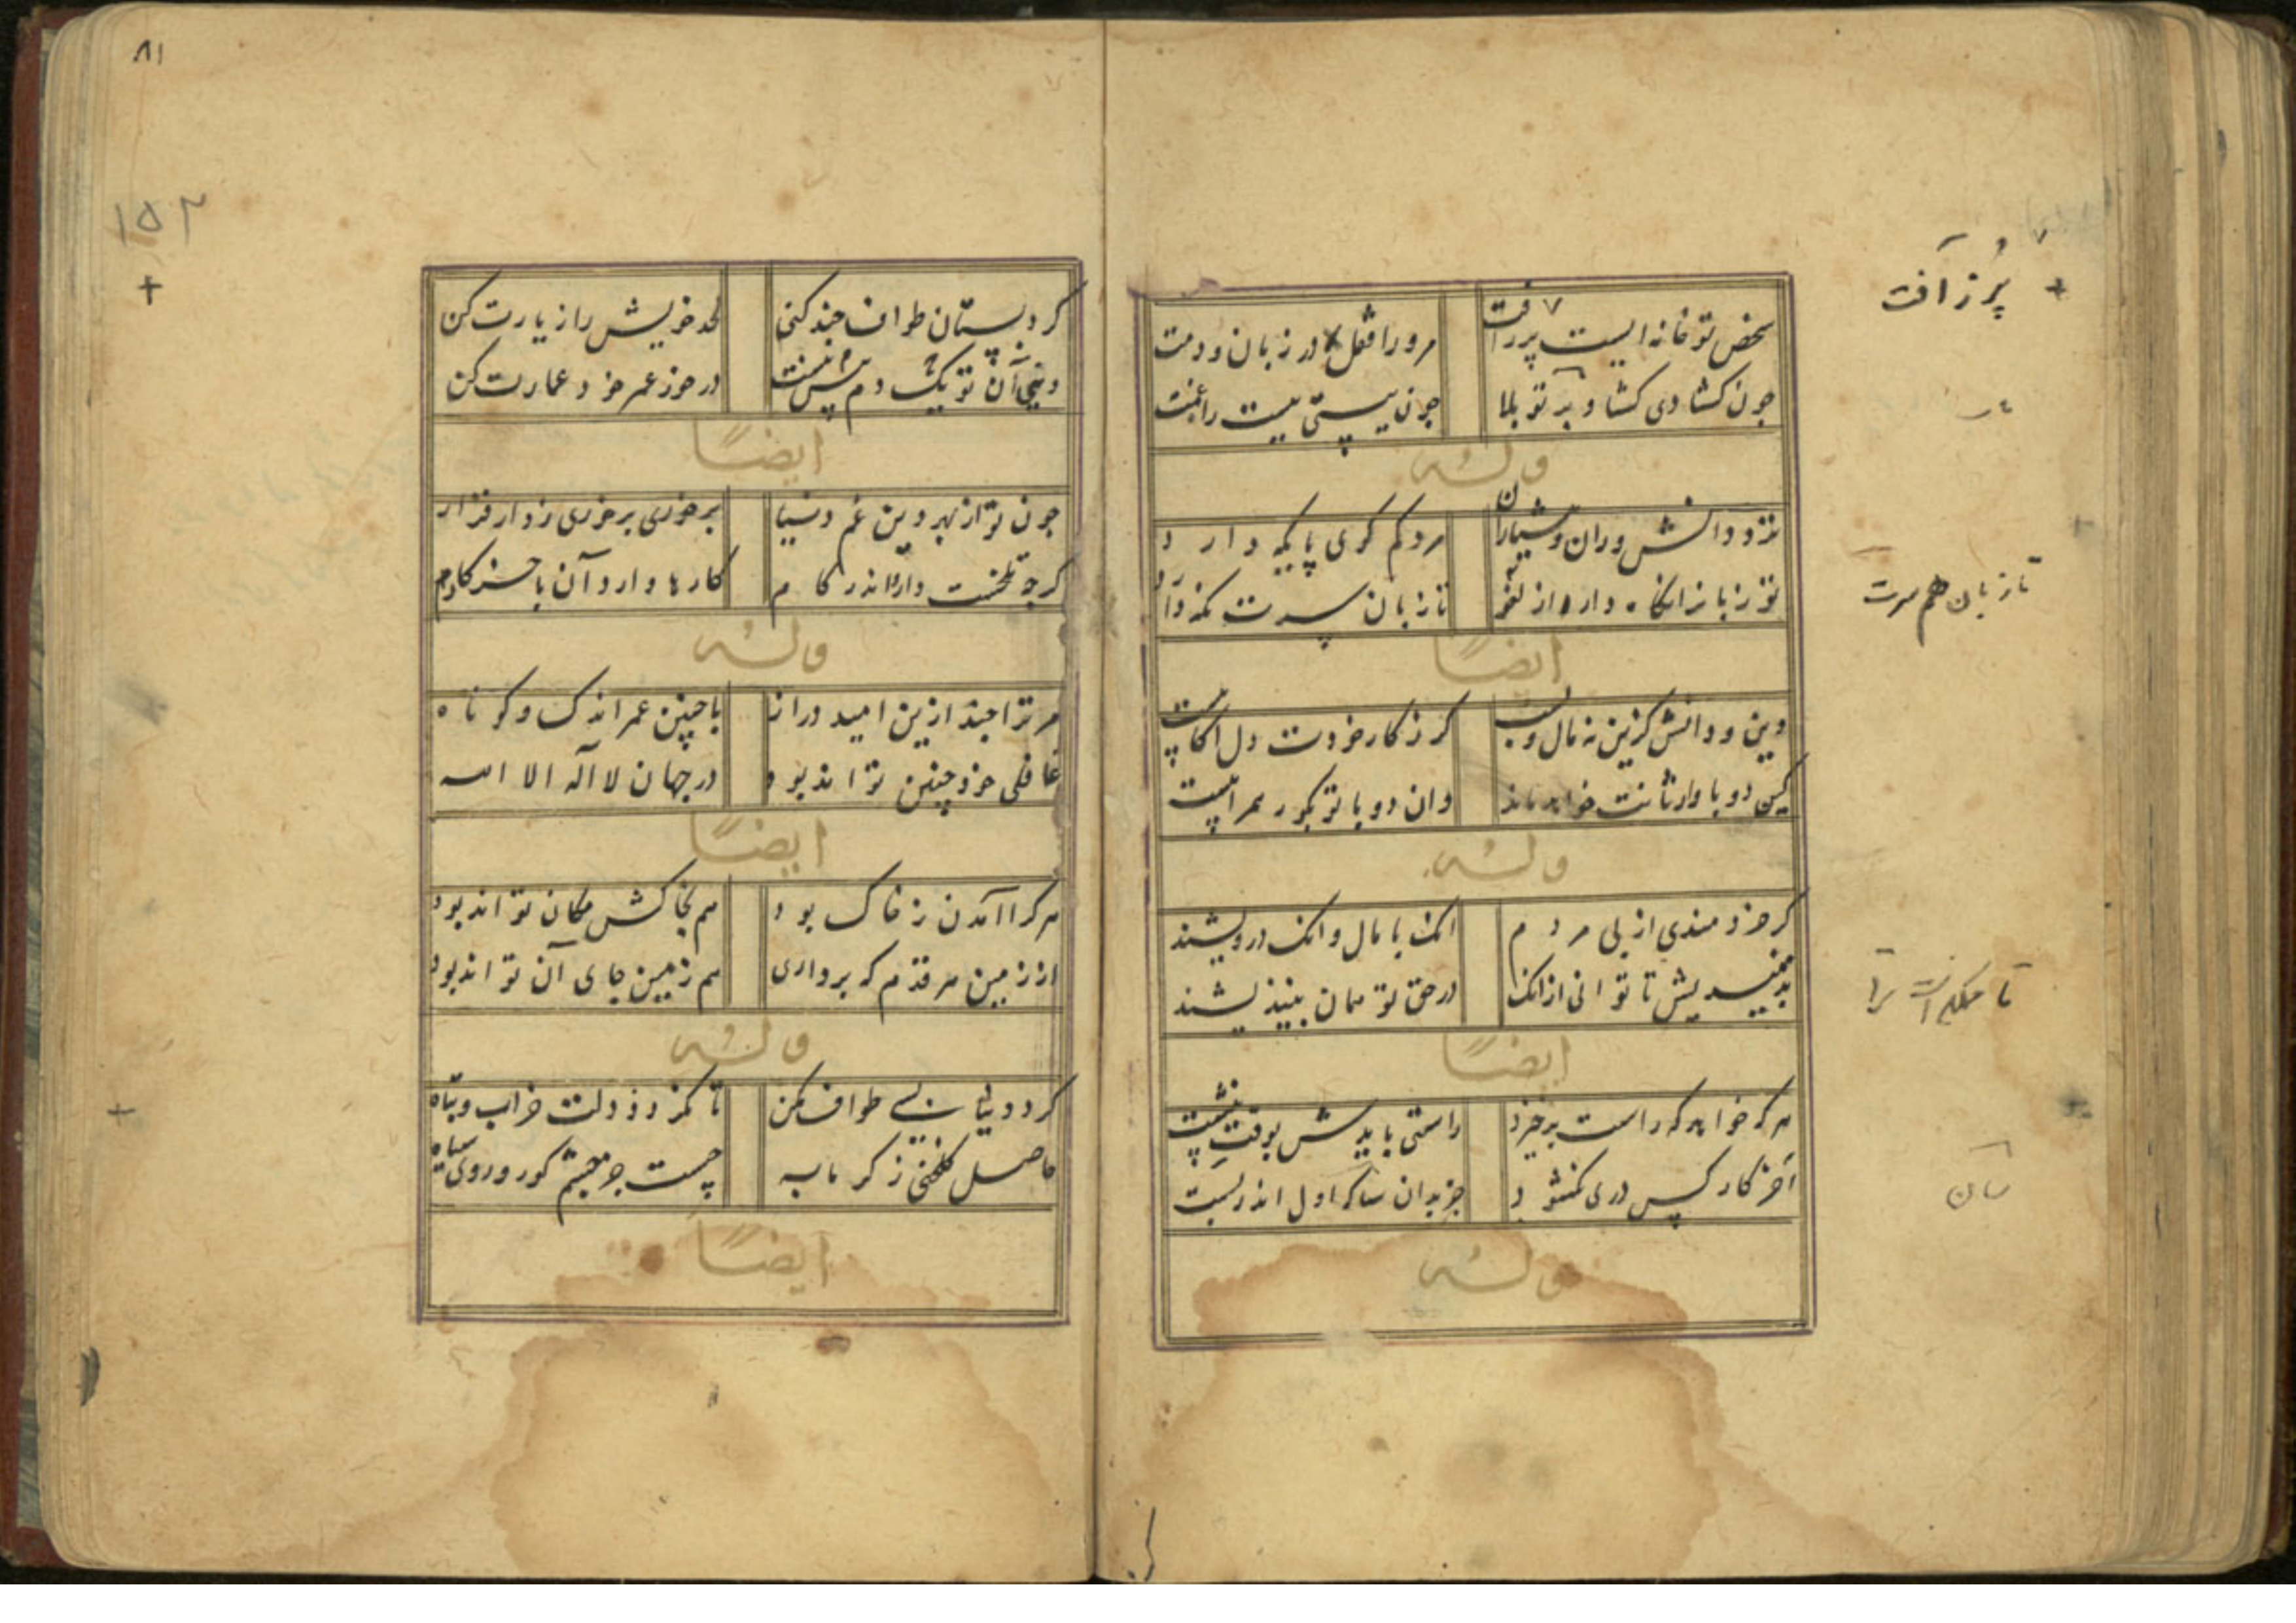 شخص تو خانه ایست پر ز آفت
مرورا قفل در زبان و دمت
چون کشادی کشاد بر تو بلا
چون ببستی ببست راه غمت
وله
نزد دانش وران و هشیاران
مرد کم گوی پایکه دارد
تو زبانرا نکاه دار از لغو
تا زبان سرت نکه دارد
ایضاً
دین و دانش گزین نه مال و نسب
گر ز کار خودت دل آگاهیست
کین دو با وارثانت خواهد ماند
وان دو با تو بگور همراهیست
وله
گر خردمندی از پی مردم
انک با مال و انک درویشند
بد میندیش تا توانی از انک
در حق تو همان بیندیشند
ایضاً
هر که خواهد که راست برخیزد
راستی بایدش بوقت نشست
آخر کار کس دری نکشود
جز بدان سان که اول اندر بست
وله
پُر ز آفت
تا زبان هم سرت
سان
۸۱
۱۵۲
گرد بستان طواف چند کنی
لحد خویش را زیارت کن
دنیی آن تو یک دم بیش نیست
در خور عمر خود عمارت کن
ایضاً
چون تو از بهر دین غم دنیا
برخوری برخوری ز دار قرار
گرچه تلخست دارو اندر کام
کارها دارد آن باخر کار
وله
مر ترا چند ازین امید دراز
با چنین عمر اندک و کوتاه
غافلی خود چنین تواند بود
در جهان لا اله الا الله
ایضاً
هر کرا آمدن ز خاک بود
هم بخاکش مکان تواند بود
از زمین هر قدم که برداری
هم زمین جای آن تواند بود
وله
گرد دنیای دنی طواف مکن
تا نکردد دلت خراب و تباه
حاصل گلخنی ز گرمابه
چیست جز چشم کور و روی سیاه
ایضاً